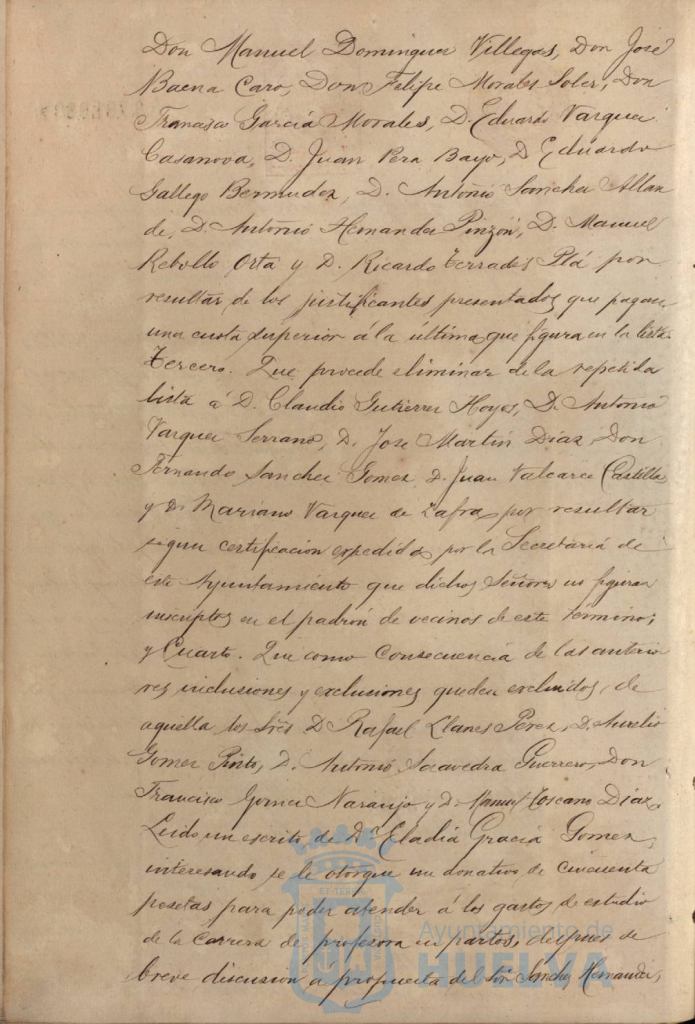 Don Manuel Dominguez Villegas, Don José
Baena Caro, Don Felipe Morales Soler, Don
Francisco García Morales, D. Eduardo Vazquez
Casanova, D. Juan Pera Bayo, D Eduardo
Gallego Bermudez, D. Antonio Sanchez Allan
de, D. Antonio Hernandez Pinzón, D. Manuel
Rebollo Orta y D. Ricardo Terrades Plá por
resultar de los justificantes presentados que pagan
una cuota superior á la última que figura en la lista.
Tercero. Que procede eliminar de la repetida
lista á D. Claudio Gutierrez Hoyos, D. Antonio
Vazquez Serrano, D. Jose Martin Diaz, Don
Fernando Sanchez Gomez, D. Juan Valcarce Castilla
y D. Mariano Vazquez de Zafra, por resultar
segun certificación expedida por la Secretaría de
este Ayuntamiento que dichos Señores no figuran
inscriptos en el padrón de vecinos de este término;
y Cuarto. Que como consecuencia de las anterio
res inclusiones y exclusiones queden excluidos, de
aquella los Sres D Rafael Llanes Perez, D. Aurelio
Gomez Pinto, D. Antonio Saavedra Guerrero, Don
Francisco Gomez Naranjo y D. Manuel Toscano Diaz.
Leido un escrito de Dª Eladia Gracia Gomez,
interesando se le otorgue un donativo de cincuenta
pesetas para poder atender á los gastos de estudio
de la carrera de profesora en partos, despues de
breve discusion a propuesta del Sor Sanchez Hernandez,
Ayuntamiento de
HUELVA